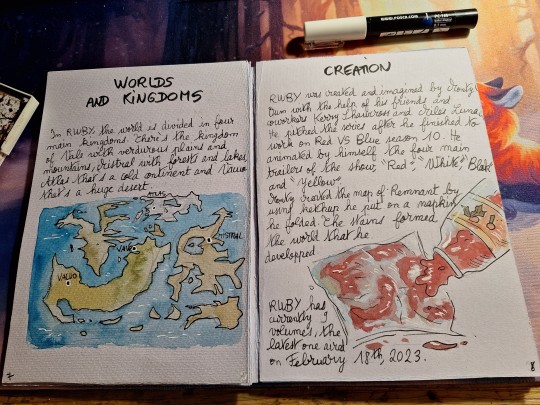 WORLDS
AND KINGDOMS
In RWBY, the world is divided in four
main kingdoms. There's the kingdom
of Vale with verdurous plains and
mountains, Mistral with forests and lakes,
Atlas that's a cold continent and Vacuo
that's a huge desert.
ATLAS
MISTRAL
VALE
VACUO
7
CREATION
RWBY was created and imagined by Monty
Oum with the help of his friends and
coworkers Kerry Shawcross and Miles Luna.
He pitched the series after he finished to
work on Red VS Blue season 10. He
animated by himself the four main
trailers of the show, "Red", "White", "Black"
and "Yellow".
Monty created the map of Remnant by
using ketchup he put on a napkin
he folded. The stains formed
the world that he
developped
RWBY has
currently 9
volumes, the
latest one aired
on February 18th, 2023.
8